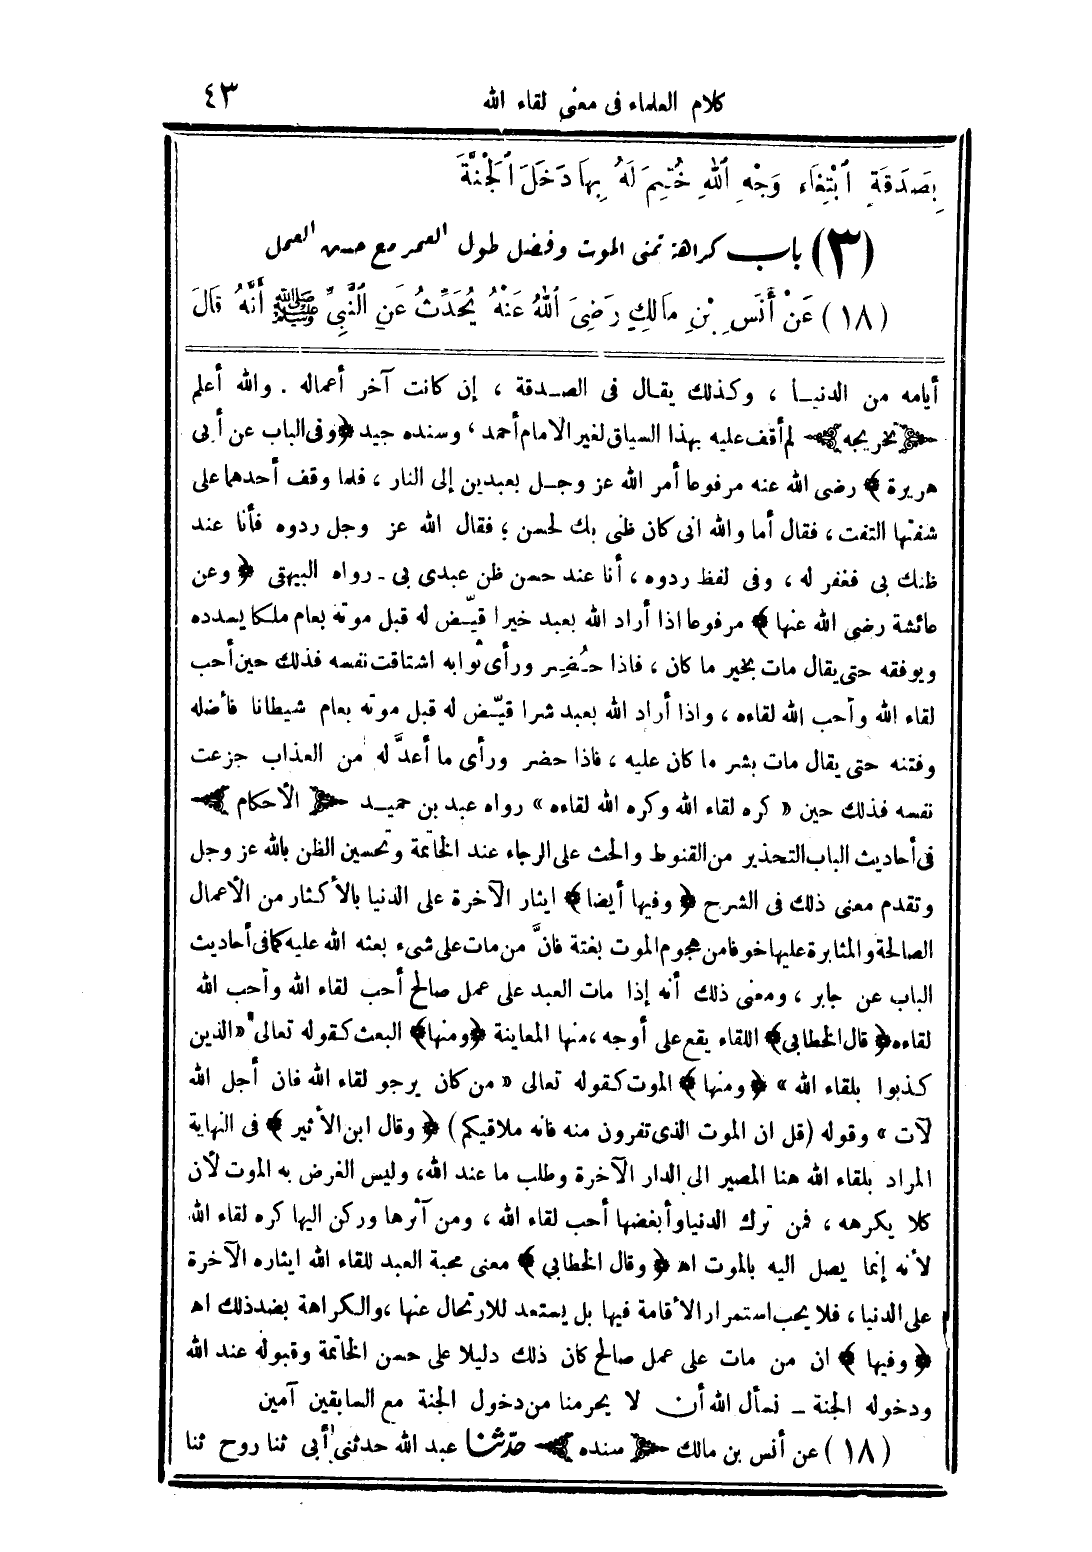 كلام العلماء فى معنى لقاء الله ٤٣
بِصَدَقَةٍ ٱبْتِغَاءَ وَجْهِ ٱللهِ خُتِمَ لَهُ بِهَا دَخَلَ ٱلْجَنَّةَ
(٣) باب كراهة تمنى الموت وفضل طول العمر مع حسن العمل
(١٨) عَنْ أَنَسِ بْنِ مَالِكٍ رَضِىَ ٱللهُ عَنْهُ يُحَدِّثُ عَنِ ٱلنَّبِىِّ ﷺ أَنَّهُ قَالَ
أيامه من الدنيا ، وكذلك يقال فى الصدقة ، إن كانت آخر أعماله . والله أعلم
﴿ تخريجه ﴾ لم أقف عليه بهذا السياق لغير الامام أحمد ، وسنده جيد ﴿ وفى الباب عن أبى
هريرة ﴾ رضى الله عنه مرفوعا أمر الله عز وجل بعبدين إلى النار ، فلما وقف أحدهما على
شفتها التفت ، فقال أما والله انى كان ظنى بك لحسن ؛ فقال الله عز وجل ردوه فأنا عند
ظنك بى فغفر له ، وفى لفظ ردوه ، أنا عند حسن ظن عبدى بى ـ رواه البيهقى ﴿ وعن
عائشة رضى الله عنها ﴾ مرفوعا اذا أراد الله بعبد خيرا قيّض له قبل موته بعام ملكا يسدده
ويوفقه حتى يقال مات بخير ما كان ، فاذا حُضِر ورأى ثوابه اشتاقت نفسه فذلك حين أحب
لقاء الله وأحب الله لقاءه ، واذا أراد الله بعبد شرا قيّض له قبل موته بعام شيطانا فأضله
وفتنه حتى يقال مات بشر ما كان عليه ، فاذا حضر ورأى ما أعدَّ له من العذاب جزعت
نفسه فذلك حين « كره لقاء الله وكره الله لقاءه » رواه عبد بن حميد ﴿ الأحكام ﴾
فى أحاديث الباب التحذير من القنوط والحث على الرجاء عند الخاتمة وتحسين الظن بالله عز وجل
وتقدم معنى ذلك فى الشرح ﴿ وفيها أيضا ﴾ ايثار الآخرة على الدنيا بالأكثار من الأعمال
الصالحة والمثابرة عليها خوفا من هجوم الموت بغتة فانَّ من مات على شىء بعثه الله عليه كما فى أحاديث
الباب عن جابر ، ومعنى ذلك أنه إذا مات العبد على عمل صالح أحب لقاء الله وأحب الله
لقاءه ﴿ قال الخطابى ﴾ اللقاء يقع على أوجه ، منها المعاينة ﴿ ومنها ﴾ البعث كقوله تعالى « الذين
كذبوا بلقاء الله » ﴿ ومنها ﴾ الموت كقوله تعالى « من كان يرجو لقاء الله فان أجل الله
لآت » وقوله (قل ان الموت الذى تفرون منه فانه ملاقيكم) ﴿ وقال ابن الأثير ﴾ فى النهاية
المراد بلقاء الله هنا المصير الى الدار الآخرة وطلب ما عند الله، وليس الغرض به الموت لأن
كلا يكرهه ، فمن ترك الدنيا وأبغضها أحب لقاء الله ، ومن آثرها وركن اليها كره لقاء الله
لأنه إنما يصل اليه بالموت اه ﴿ وقال الخطابى ﴾ معنى محبة العبد للقاء الله ايثاره الآخرة
على الدنيا ، فلا يحب استمرار الأقامة فيها بل يستعد للارتحال عنها ، والكراهة بضد ذلك اه
﴿ وفيها ﴾ ان من مات على عمل صالح كان ذلك دليلا على حسن الخاتمة وقبوله عند الله
ودخوله الجنة ـ نسأل الله أن لا يحرمنا من دخول الجنة مع السابقين آمين
(١٨) عن أنس بن مالك ﴿ سنده ﴾ حدّثنا عبد الله حدثنى أبى ثنا روح ثنا